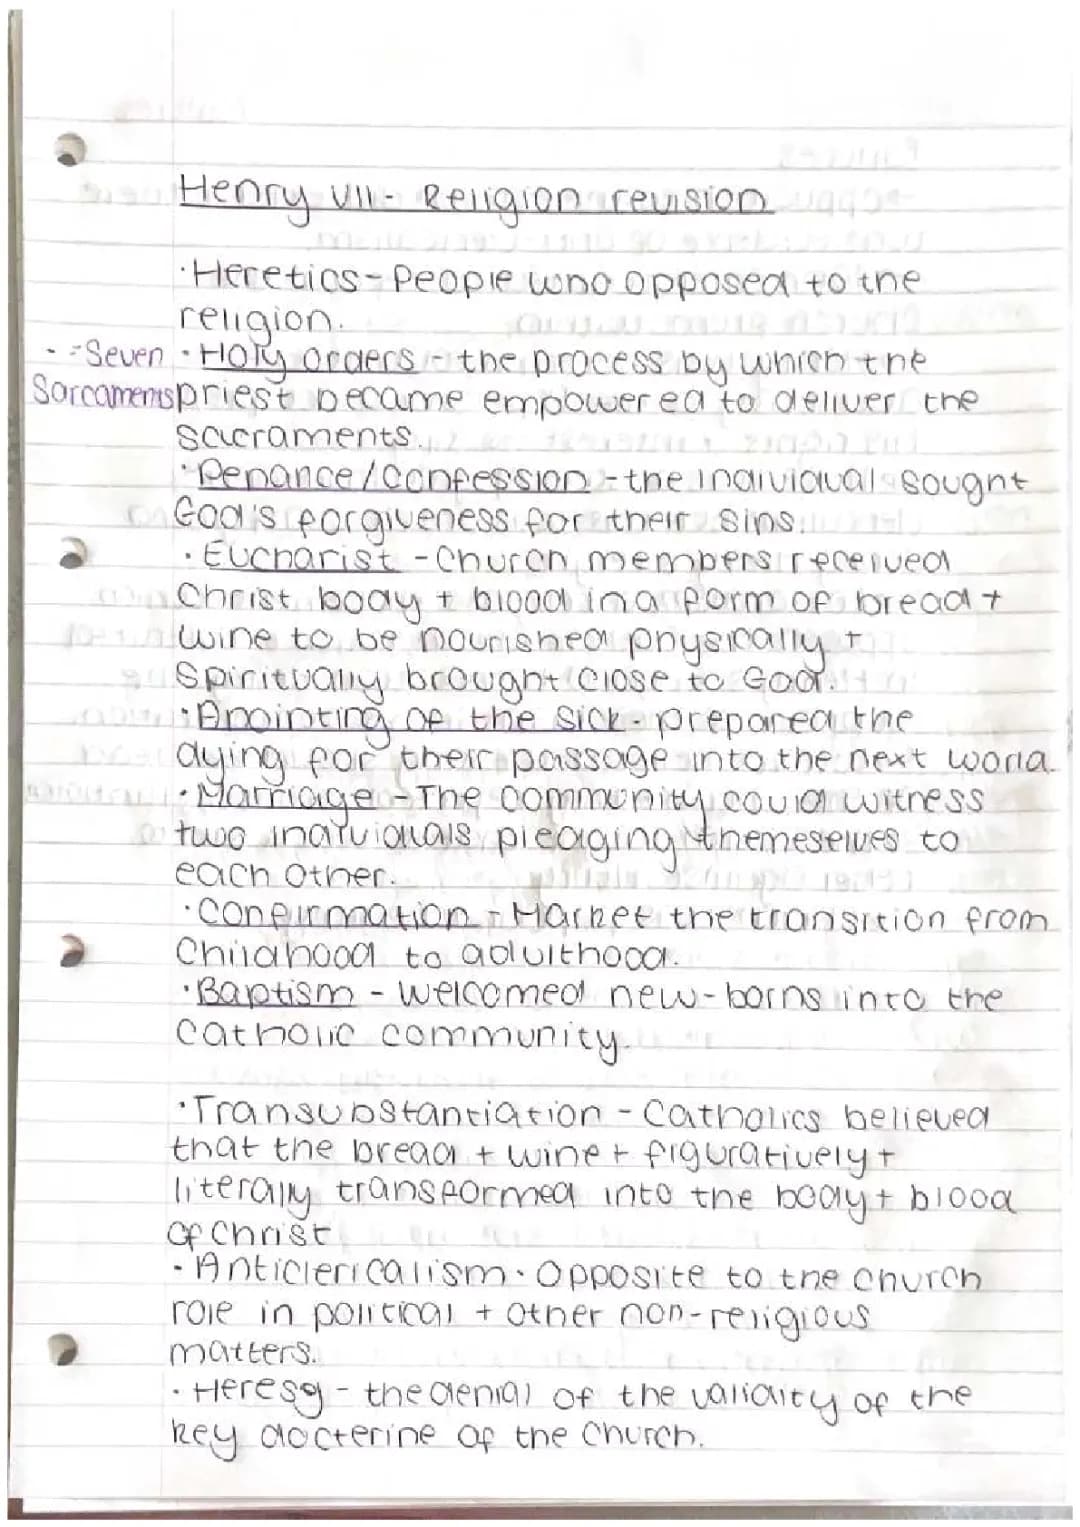 Henry VII - Religion revision
· Heretics - People who opposed to the
religion.
- - Seven · Holy orders - the process by which the
Sarcaments priest became empowered to deliver the
sacraments.
· Penance / Confession - the individual sought
God's forgiveness for their sins.
· Eucharist - Church members received
Christ body + blood in a form of bread +
wine to be nourished physically +
Spiritually brought close to God.
· Anointing of the sick - prepared the
dying for their passage into the next world.
· Marriage - The community could witness
two individuals pledging themeselves to
each other.
· Confirmation - Market the transition from
Childhood to adulthood.
· Baptism - Welcomed new-borns into the
Catholic community.
· Transubstantiation - Catholics believed
that the bread + wine + figuratively +
literally transformed into the body + blood
of Christ
· Anticlericalism · Opposite to the church
role in political + other non-religious
matters.
· Heresy - the denial of the validity of the
key docterine of the Church.